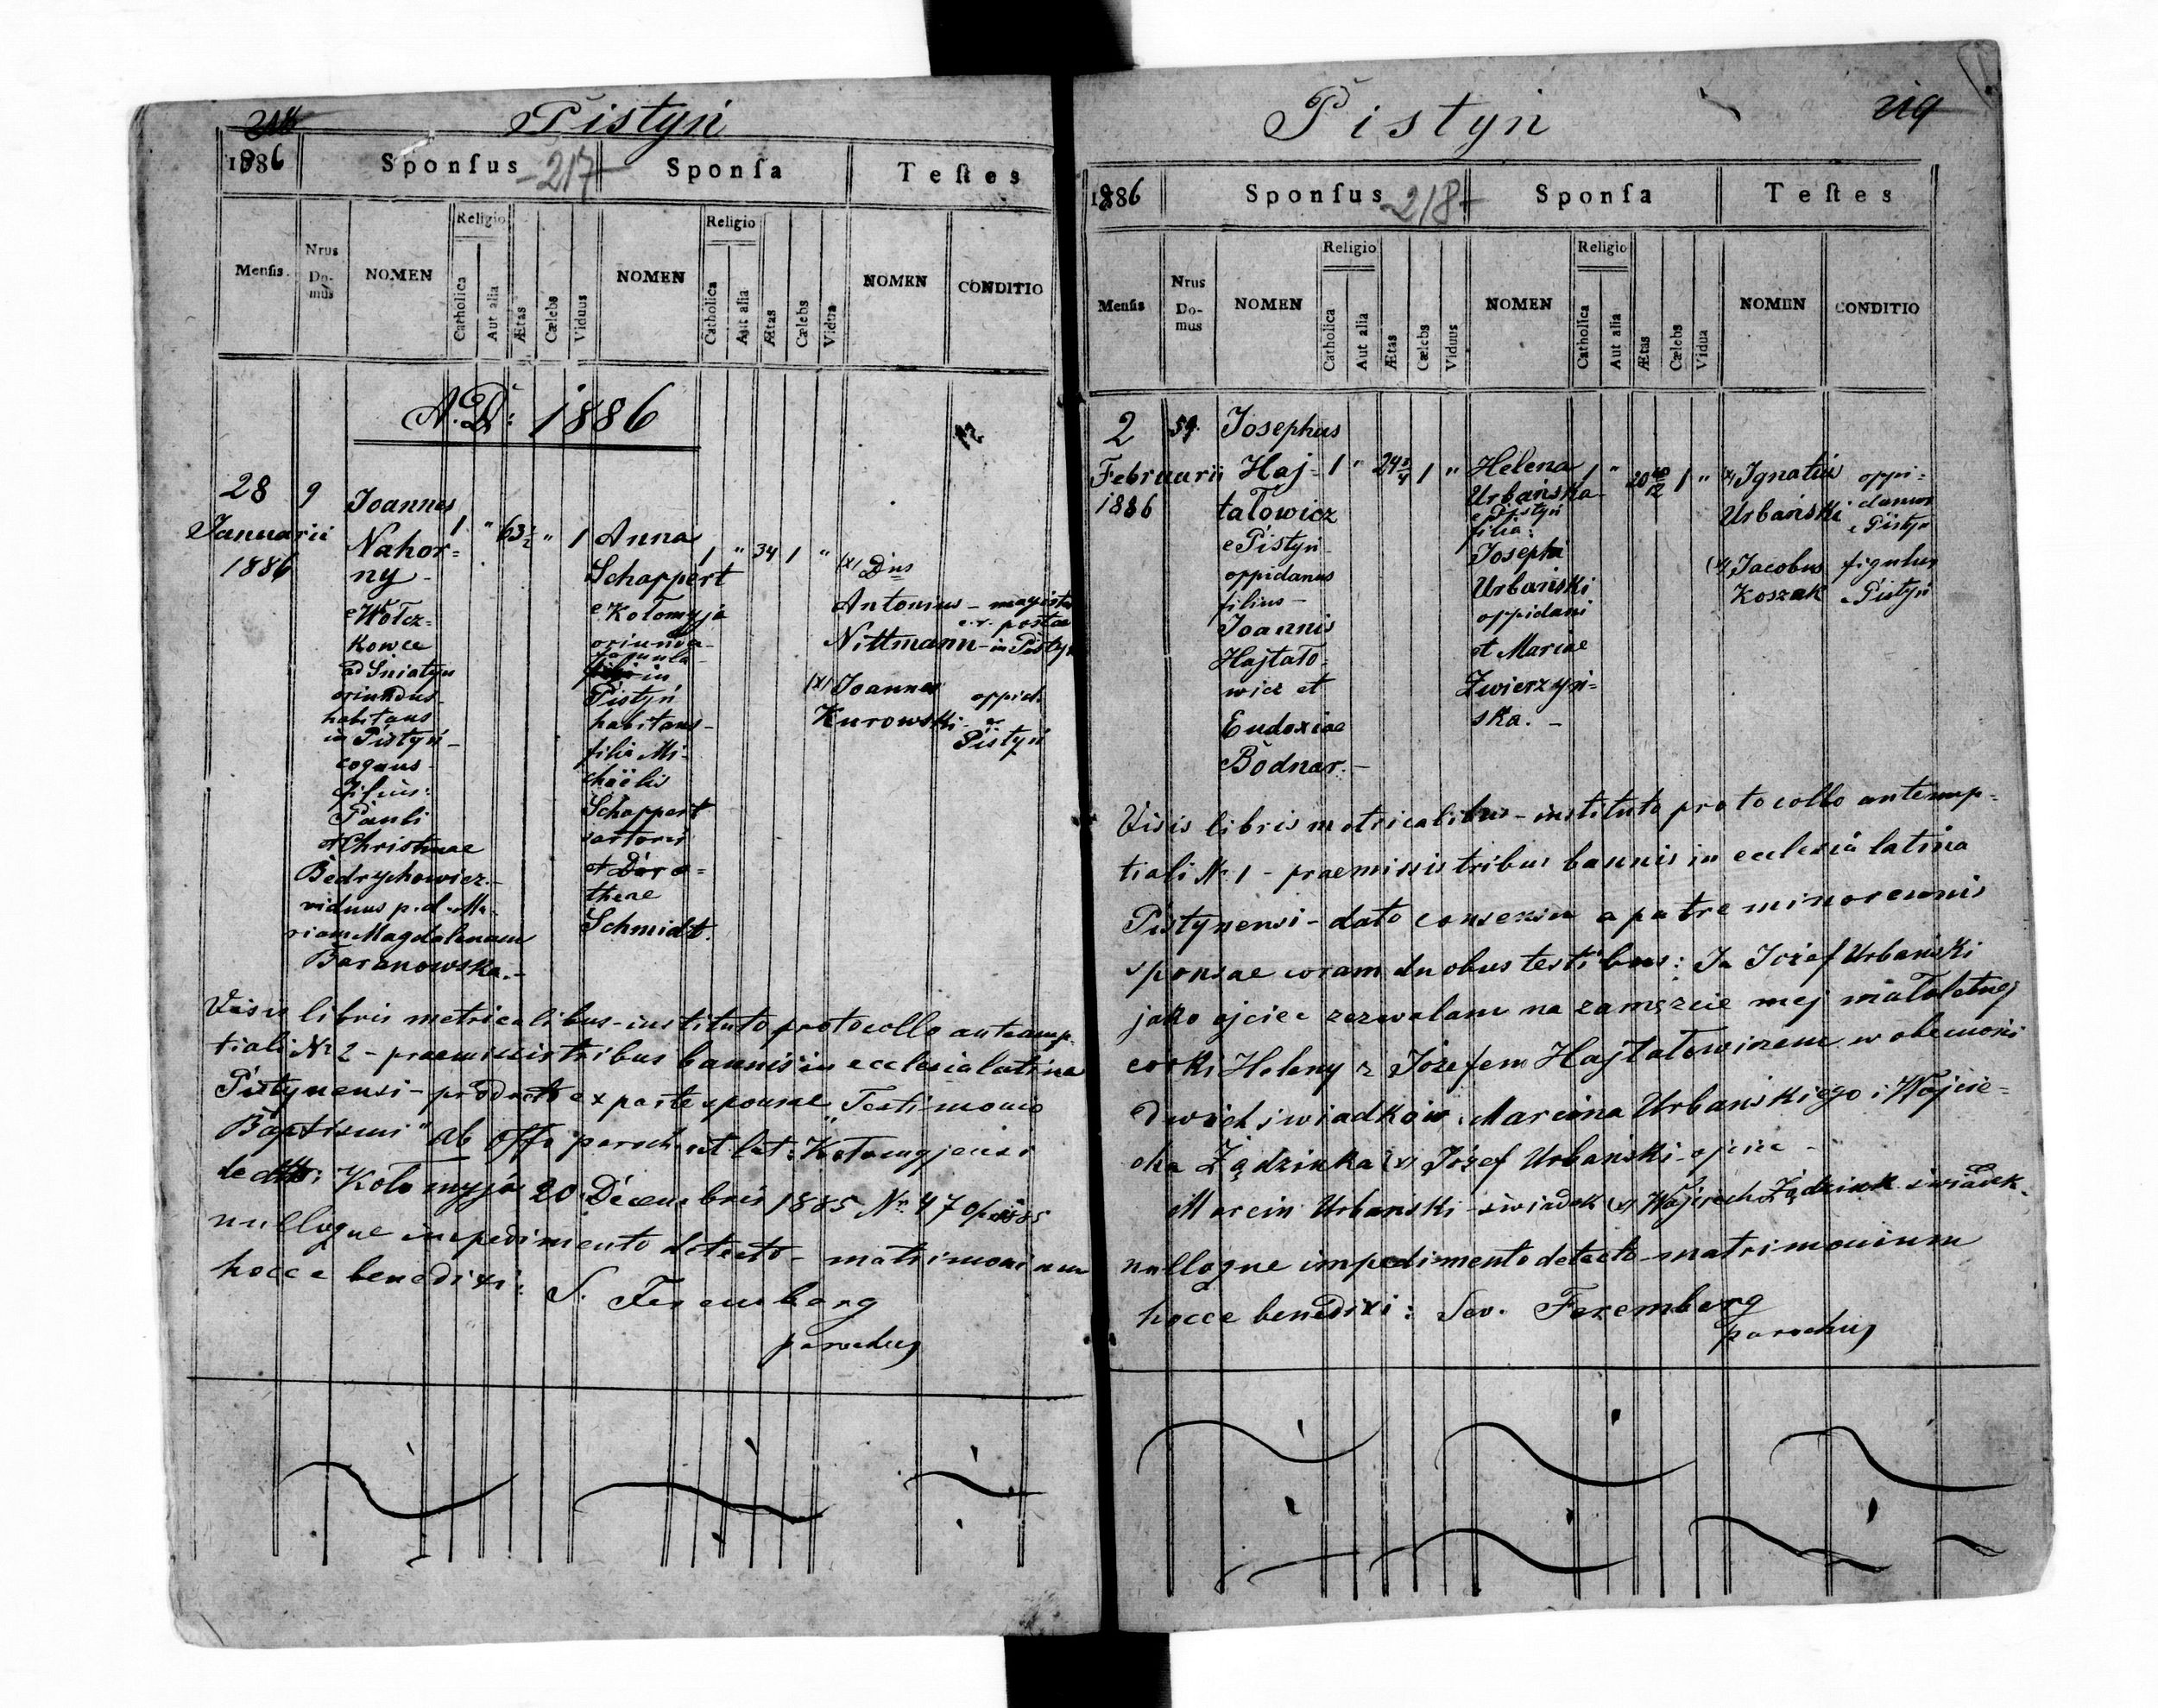 Pistyń
1886
Sponſus
-217-
Sponſa
Teſtes
Menſis.
Nrus Domus
NOMEN
Religio
Catholica
Aut alia
Ætas
Cælebs
Viduus
NOMEN
Religio
Catholica
Aut alia
Ætas
Cælebs
Vidua
NOMEN
CONDITIO
A. D: 1886
28
Januarii
1886
9
Joannes
Nahor=
ny -
e Wołcz=
kowce
ad Sniatyn
oriundus
habitans
in Pistyń -
filius:
Pauli
et Christinae
Bedrychowicz.-
viduus p. d. Ma-
riam Magdalenam
Baranowska.-
1 " 63½ " 1
Anna
Schappert
e Kołomyja
oriunda
famula
in
Pistyń
habitans -
filia Mi-
chaëlis
Schappert
sartoris
et Doro=
theae
Schmidt.
1 " 34 1 "
(x) Dnus
Antonius - magister
c. r. postae
Nittmann - in Pistyń
(x) Joannes oppid.
Kurowski - e
Pistyń
Visis libris metricalibus - instituto protocollo antenup-
tiali Nr 2 - praemissis tribus bannis in ecclesia latina
Pistynensi - producto ex parte sponsae "Testimonio
Baptismi" ab Offo paroch. rit. lat: Kołomyjensi
de dtto: Kołomyja 20 Decembris 1885 Nr. 47
nulloque impedimento detecto - matrimonium
hocce benedixi: S. Feremberg
parochus
Pistyń
219
1886
Sponſus
-218-
Sponſa
Teſtes
Menſis
Nrus Do-
mus
NOMEN
Religio
Catholica
Aut alia
Ætas
Cælebs
Viduus
NOMEN
Religio
Catholica
Aut alia
Ætas
Cælebs
Vidua
NOMEN
CONDITIO
2
Februarii
1886
59.
Josephus
Haj-
tałowicz
e Pistyń -
oppidanus
filius -
Joannis
Hajtało-
wicz et
Eudoxiae
Bodnar.-
1 " 24¾ 1 "
Helena
Urbańska
e Pistyń
filia:
Josephi
Urbański
oppidani
et Mariae
Zwierzyń=
ska. -
1 " 20 10/12 1 "
(x) Ignatius oppi=
Urbański danus
e Pistyń
(x) Jacobus figulus
Koszak e Pistyń
Visis libris metricalibus - instituto protocollo antenup-
tiali Nr. 1 - praemissis tribus bannis in ecclesia latina
Pistynensi - dato consensu a patre minorennis
sponsae coram duobus testibus: Ja Józef Urbański
jako ojciec zezwalam na zamęzcie mej małoletnej
corki Heleny z Józefem Hajtałowiczem w obecności
dwóch świadków: Marcina Urbańskiego i Wojcie=
cha Żądzinka (x) Józef Urbański - ojciec -
Marcin Urbański - świadek (x) Wojciech Żądzink świadek.
nulloque impedimento detecto - matrimonium
hocce benedixi: Sev. Feremberg
parochus